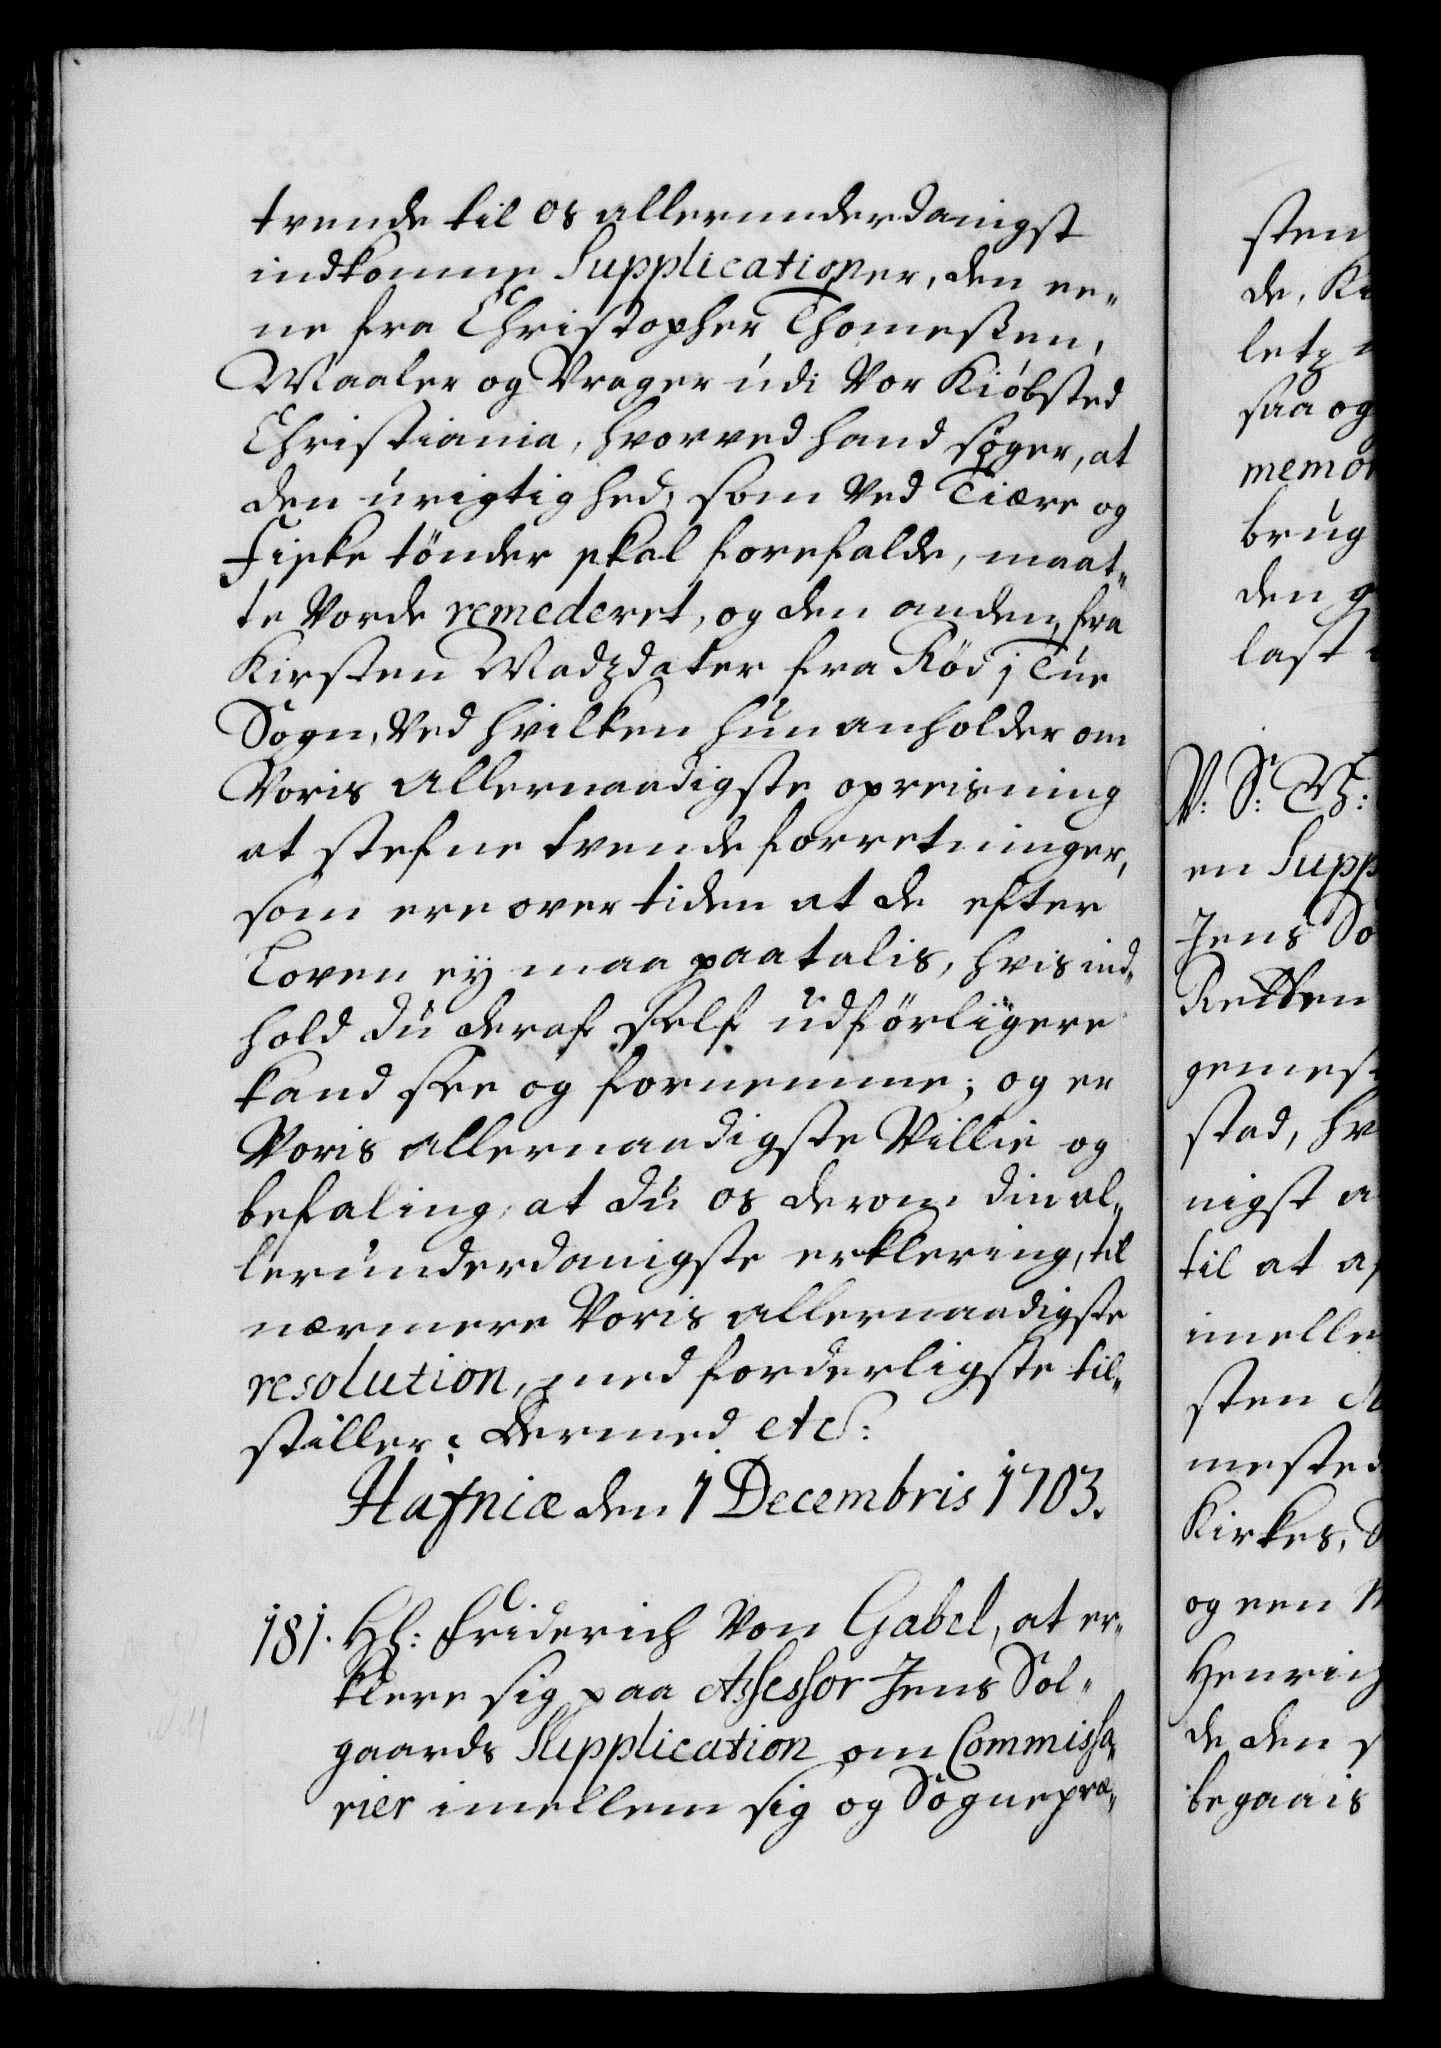 tvende til os allerunderdanigst
indkomne Supplicationer, den ee„
ne fra Christopher Thomeßen,
Maaler og Vrager udi Vor Kiöbsted
Christiania, hvorved hand søger, at
den urigtighed, som Ved Tiære og
Fiske tönder skal forefalde, maat„
te Vorde remederet, og den anden, fra
Kirsten Madzdater fra Röd j Tue
Sogn, Ved hvilken hun anholder om
Voris allernaadigste opreisning
at stefne tvende forretninger,
som ere over tiden at de efter
Loven ey maa paatalis, hvis ind„
hold du deraf self udförligere
kand see og fornemme; og er
Voris allernaadigste Villie og
befaling, at du os derom din al„
lerunderdanigste erklering, til
nærmere Voris allernaadigste
resolution, med forderligste til„
stiller. Dermed etc:
Hafniæ den 1 Decembris 1703.
181. Hh: Friderich Von Gabel, at er„
klere sig paa Assessor Jens Sol„
gaards Supplication om Commissa„
rier imellem sig og Sognepræ„
sten
de, 
letz
saa og
brug
den
last
V: S: Th:
en Supp
Jens So
Retten
gemes
stad, hv
nigst a
til at a
imelle
sten
meste
Kirkes,
og een
Henrich
de den
begaais